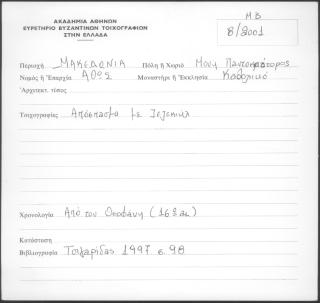 ΑΚΑΔΗΜΙΑ ΑΘΗΝΩΝ
ΕΥΡΕΤΗΡΙΟ ΒΥΖΑΝΤΙΝΩΝ ΤΟΙΧΟΓΡΑΦΙΩΝ
ΣΤΗΝ ΕΛΛΑΔΑ
ΜΒ
8/8001
Περιοχή ΜΑΚΕΔΟΝΙΑ Πόλη ή Χωριό Μονη Παντοκράτορος
Νομός ή Ἐπαρχία ΑΘΩΣ Μοναστήρι ή Ἐκκλησία Καθολικό
Ἀρχιτεκτ. τύπος
Τοιχογραφίες Απόσπασμα με Ιεζεκιήλ
Χρονολογία Από τον (16ος αι.)
Κατάσταση
Βιβλιογραφία Τσιγαρίδας 1997 σ. 98